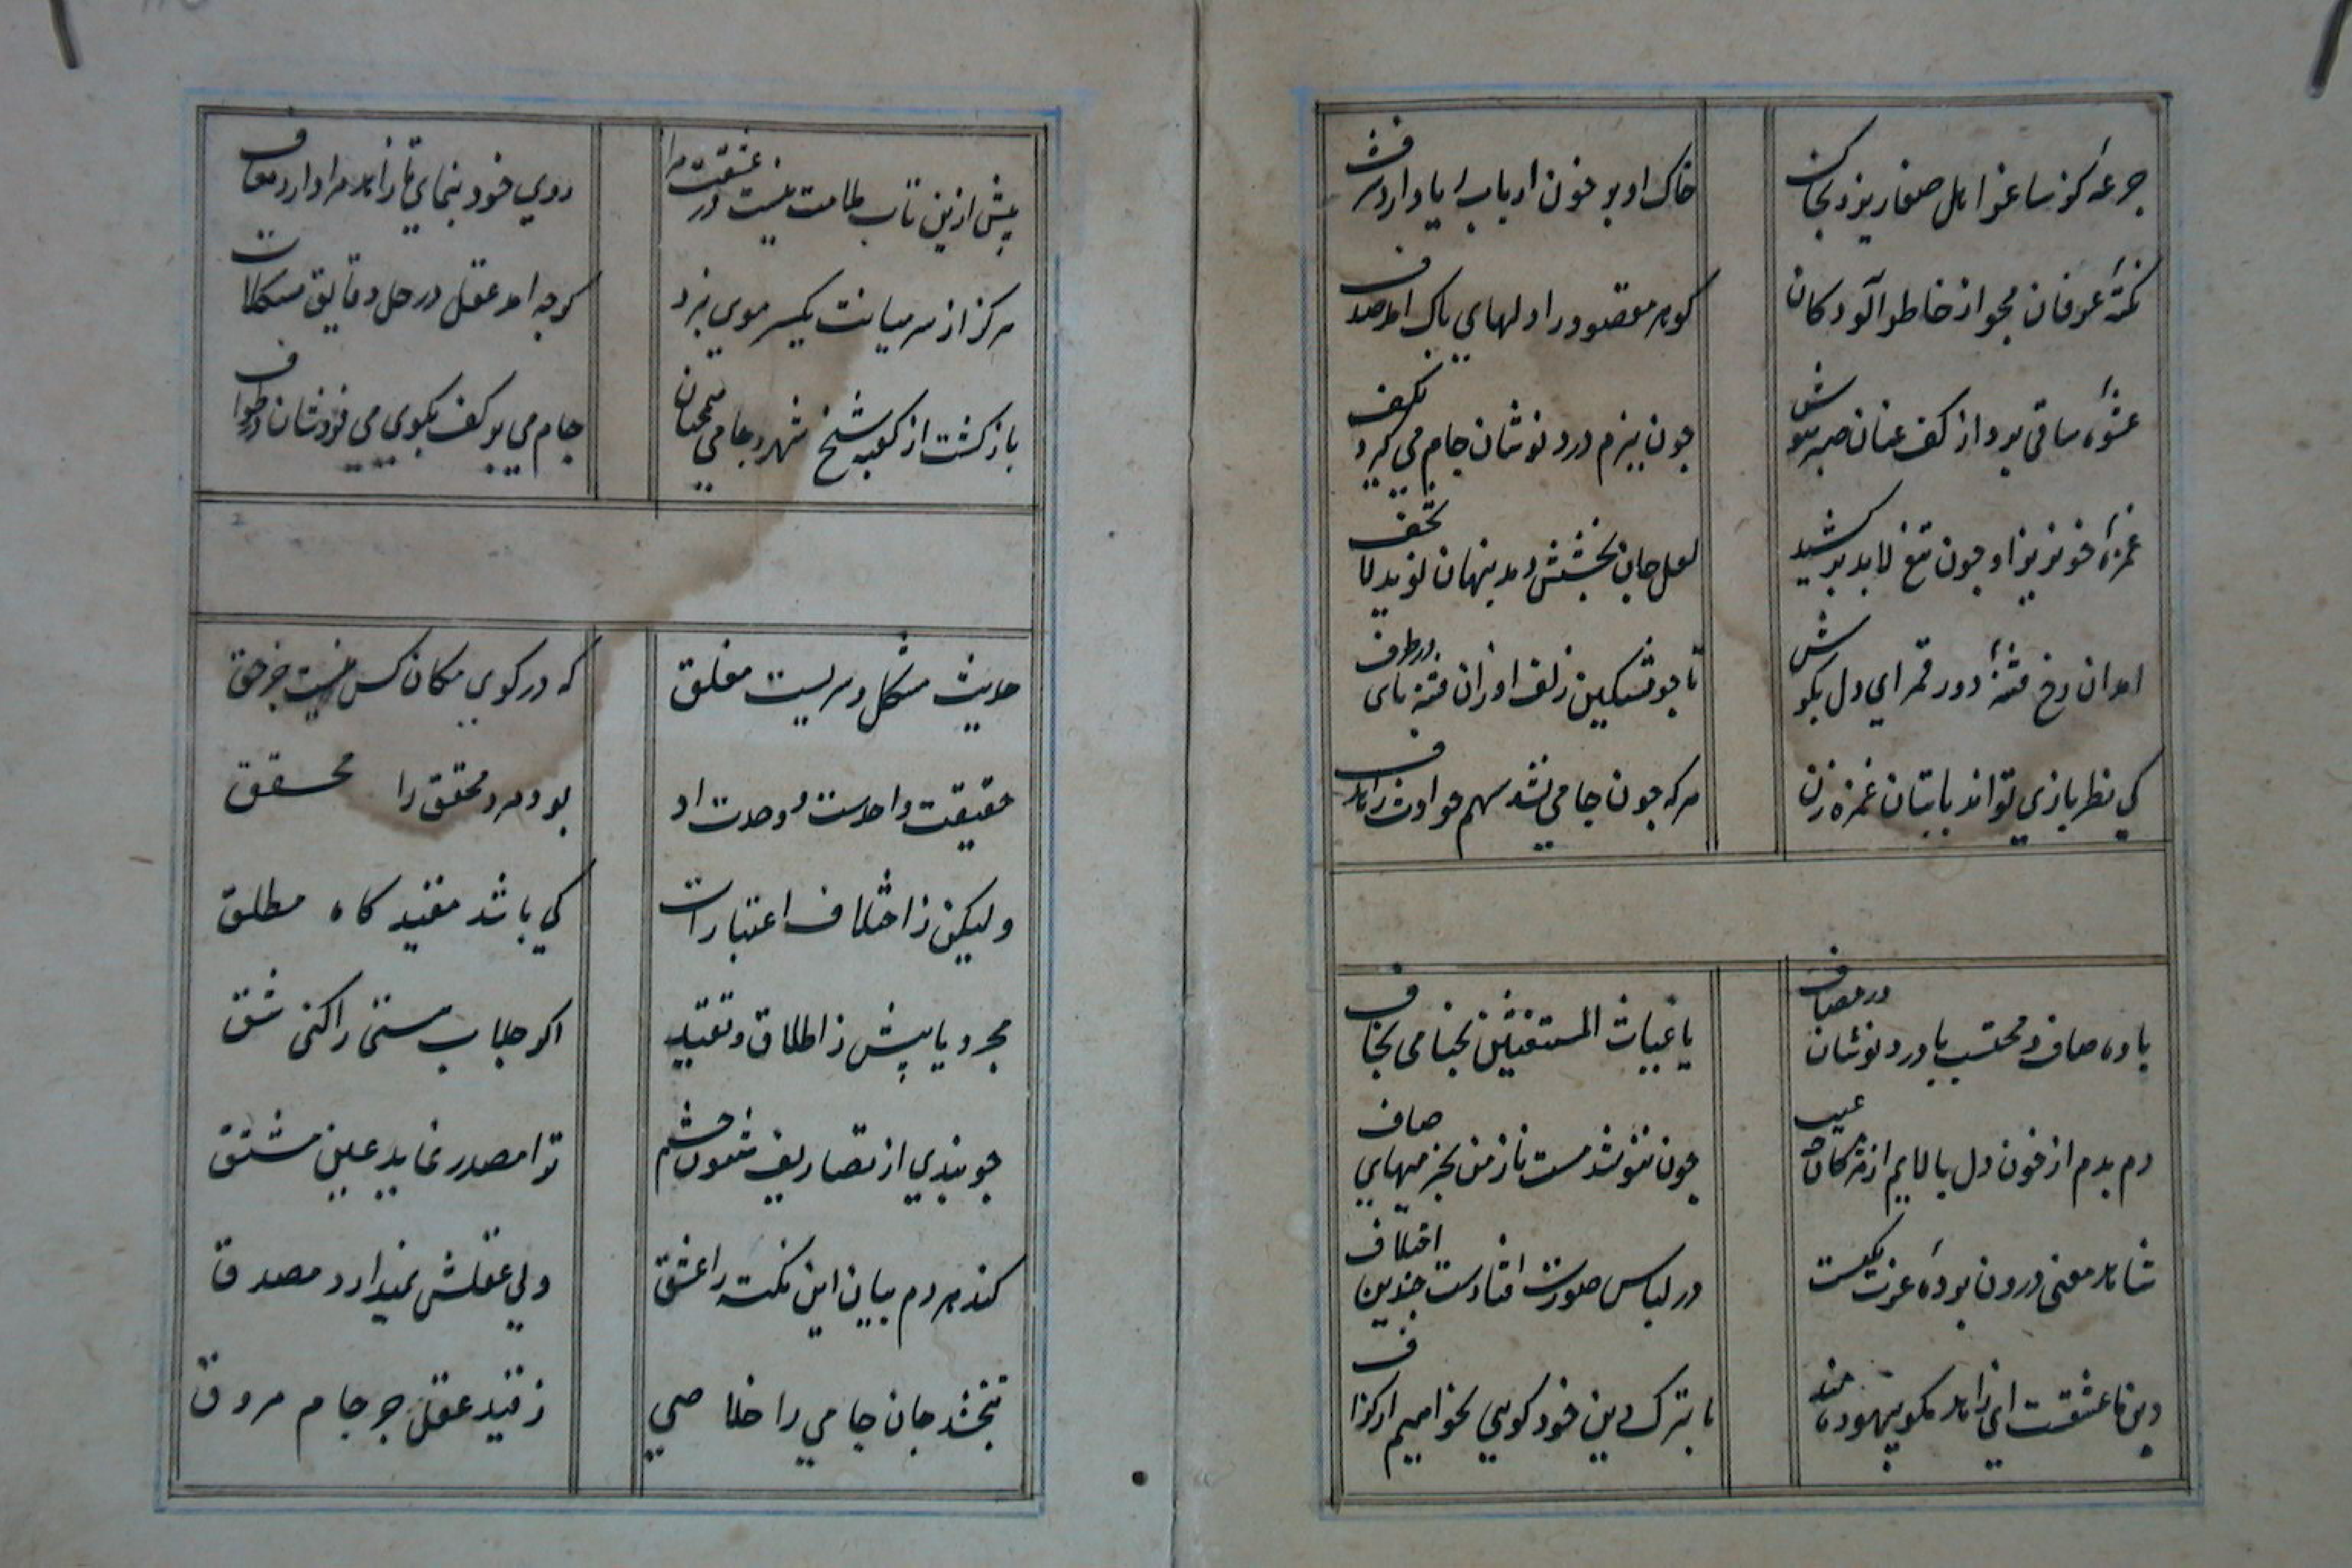 جرعه کز ساغر اهل صفا ریزد بخاک
خاک او بر خون ارباب ریا دارد شرف
نکتهٔ عرفان مجو از خاطر آلودکان
کوهر مقصود را دلهای پاک آمد صدف
عشوهٔ ساقی برد از کف عنان صبر و هوش
چون ببزم درد نوشان جام می کیرد بکف
غمزهٔ خونریز او چون تیغ لابد برکشید
لعل جان بخشش دهد پنهان نوید لا تخف
آمد آن رخ فتنهٔ دور قمر ای دل بکوش
تا جو مشکین زلف او زان فتنه باشی بر طرف
کی نظر بازی تواند با بتان غمزه زن
هر که چون جامی نشد سهم حوادث را هدف
باده صاف و محتسب با درد نوشان در مصاف
یا غیاث المستغیثین نجنا می نخاف
دم بدم از خون دل پالایم از مژکان
چون ننوشد مست ناز من بجز میهای صاف
شاهد معنی درون پردهٔ عزت یکیست
در لباس صورت افتادست چندین اختلاف
دین ما عشقست ای زاهد مکو بیهوده پند
ما بترک دین خود کویی نخواهیم از کزاف
بیش ازین تاب ملامت نیست در عشقت مرا
روی خود بنمای تا زاهد مرا دارد معاف
هرکز از سر میانت یکسر موی نزد
کرچه آمد عقل در حل دقایق موشکاف
بازکشت از کعبه شیخ شهر و جامی همچنان
جام می بر کف بکوی می فروشان در طواف
حدیث مشکل و سریست مغلق
که در کوی مکان کس نیست جز حق
حقیقت واحدست و وحدت او
بود مرد محقق را محقق
ولیکن ز اختلاف اعتبارات
کی باشد مقید کاه مطلق
مجرد یابیش ز اطلاق و تقیید
اکر جلباب هستی را کنی شق
چو بندی از تصاریف شئون چشم
ترا مصدر نماید عین مشتق
کند هر دم بیان این نکته را عشق
ولی عقلش نمیدارد مصدق
نبخشد جان جامی را خلاصی
ز قید عقل جز جام مروق